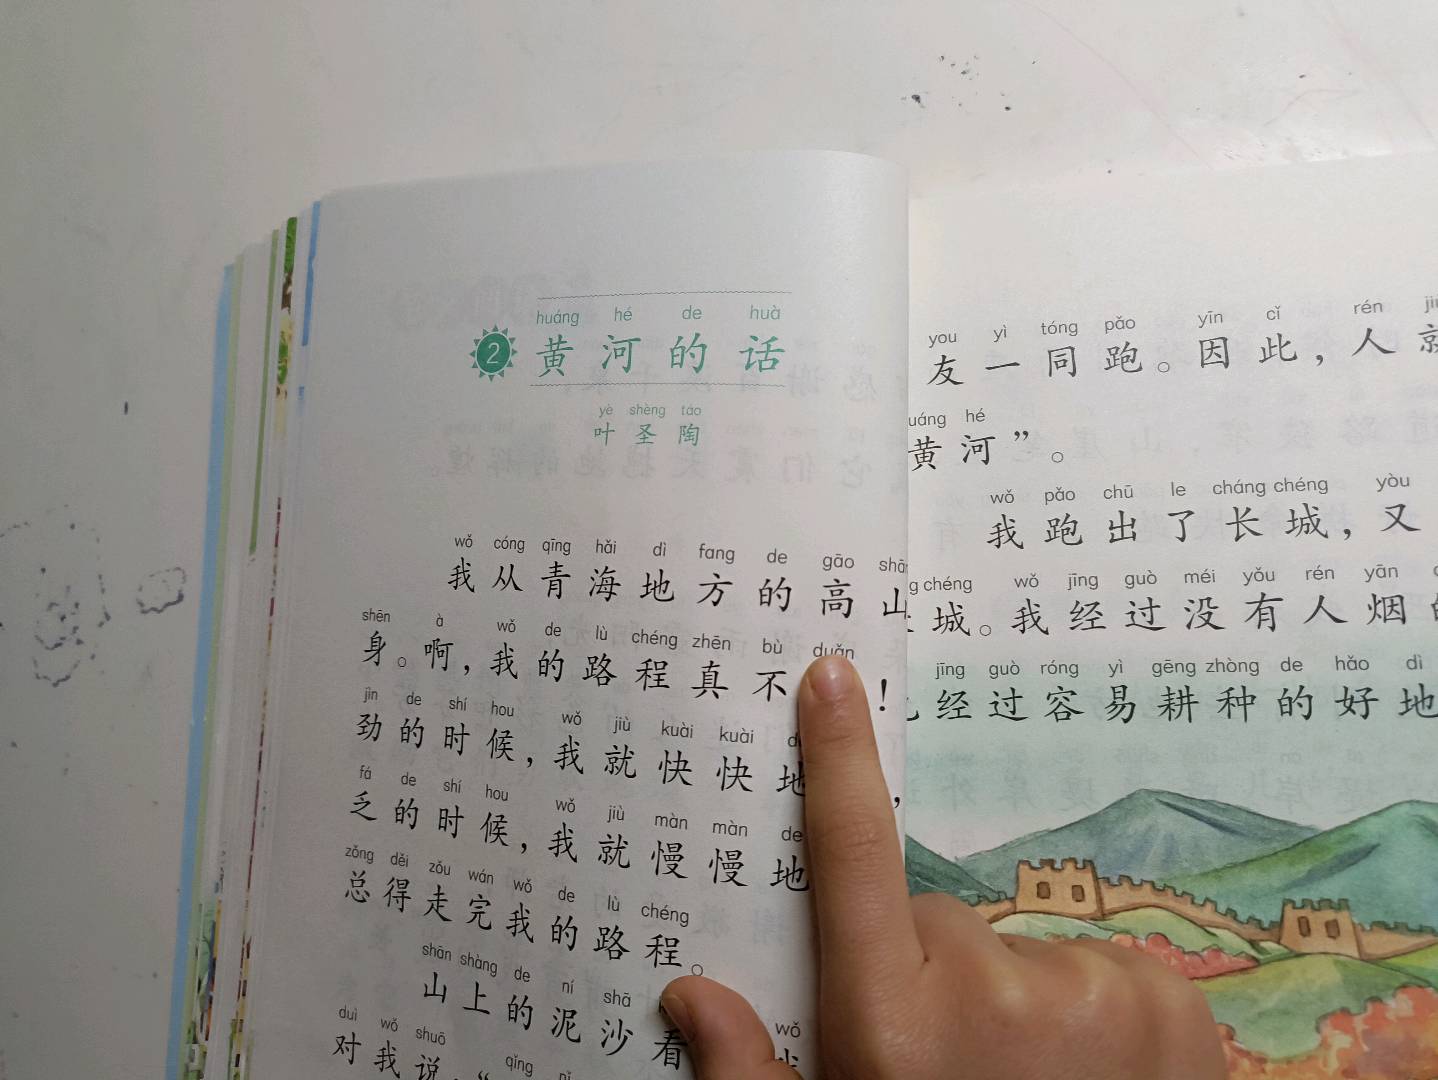 huáng hé de huà
2 黄河的话
yè shèng táo
叶圣陶
wǒ cóng qīng hǎi dì fang de gāo
我从青海地方的高山
shēn à wǒ de lù chéng zhēn bù duǎn
身。啊，我的路程真不！
jìn de shí hou wǒ jiù kuài kuài
劲的时候，我就快快地，
fá de shí hou wǒ jiù màn màn de
乏的时候，我就慢慢地
zǒng děi zǒu wán wǒ de lù chéng
总得走完我的路程。
shān shàng de ní shā
山上的泥沙看
duì wǒ shuō qǐng wǒ
对我说，“
you yì tóng pǎo yīn cǐ rén
友一同跑。因此，人就
hé
黄河”。
wǒ pǎo chū le cháng chéng yòu
我跑出了长城，又
chéng wǒ jīng guò méi yǒu rén yān
城。我经过没有人烟
jīng guò róng yì gēng zhòng de hǎo dì
经过容易耕种的好地